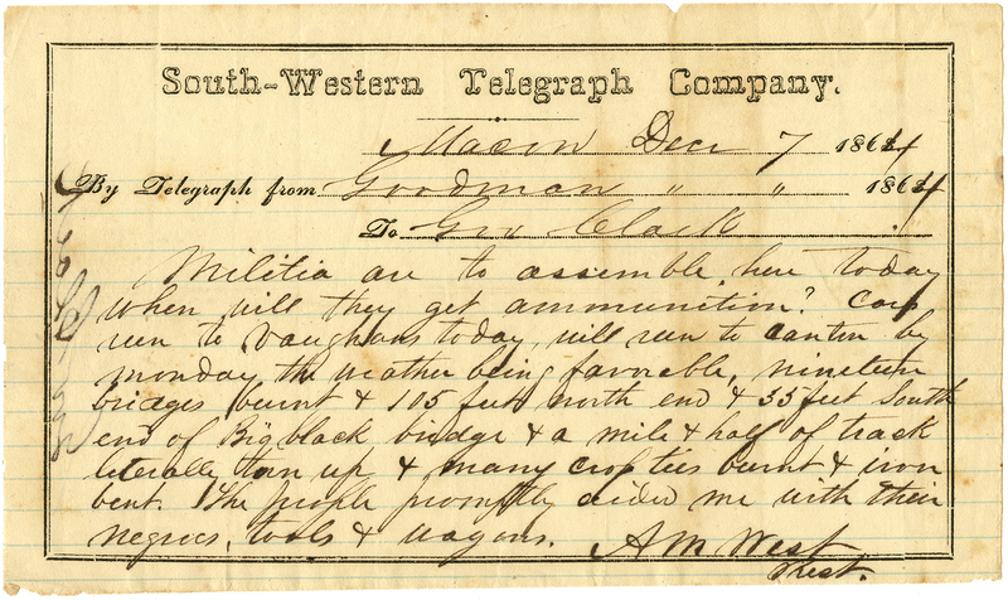 South-Western Telegraph Company.
Macon Decr 7 1864
By Telegraph from Goodman " " 1864
To Gov Clark
Militia are to assemble here today
when will they get ammunition? Cars
run to Vaughans today, will run to canton by
monday the weather being favorable, nineteen
bridges burnt & 105 feet north end & 35 feet South
end of Big black bridge & a mile & half of track
literally torn up & many cross ties burnt & iron
bent. The people promptly aided me with their
negroes, tools & wagons.
A M West
Prest.